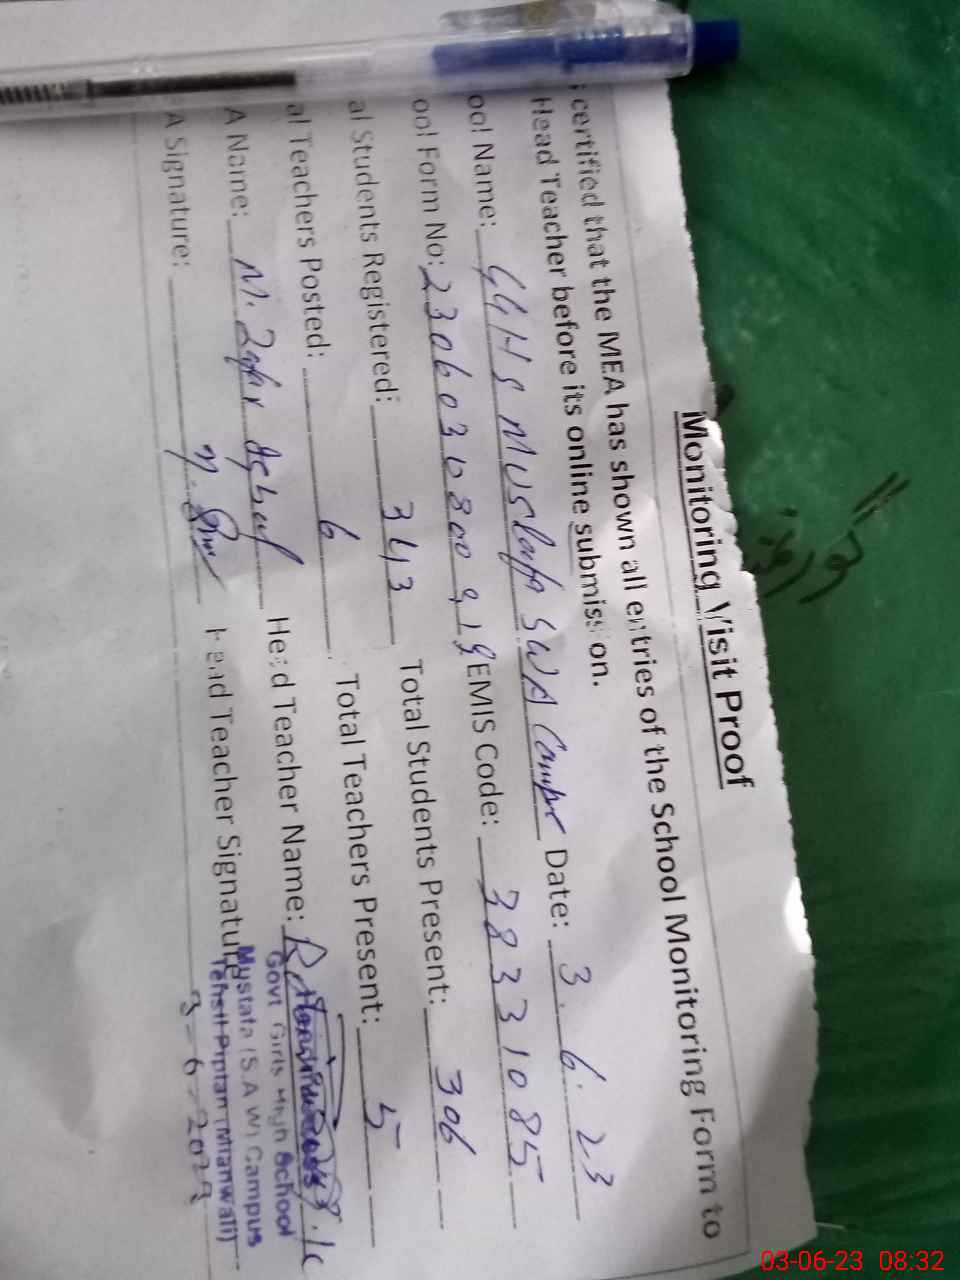 Monitoring Visit Proof
certified that the MEA has shown all entries of the School Monitoring Form to
Head Teacher before its online submission.
ool Name: GGHS Mustafa SWA Campus Date: 3.6.23
ool Form No: EMIS Code: 38331085
al Students Registered: 343 Total Students Present: 306
al Teachers Posted: 6 Total Teachers Present: 5
A Name: M. Zafar Head Teacher Name:
A Signature: Head Teacher Signature
Govt Girls High School
Mustafa (S.A.W) Campus
Tehsil Piplan (Mianwali)
3-6-2023
گورنمنٹ
03-06-23 08:32